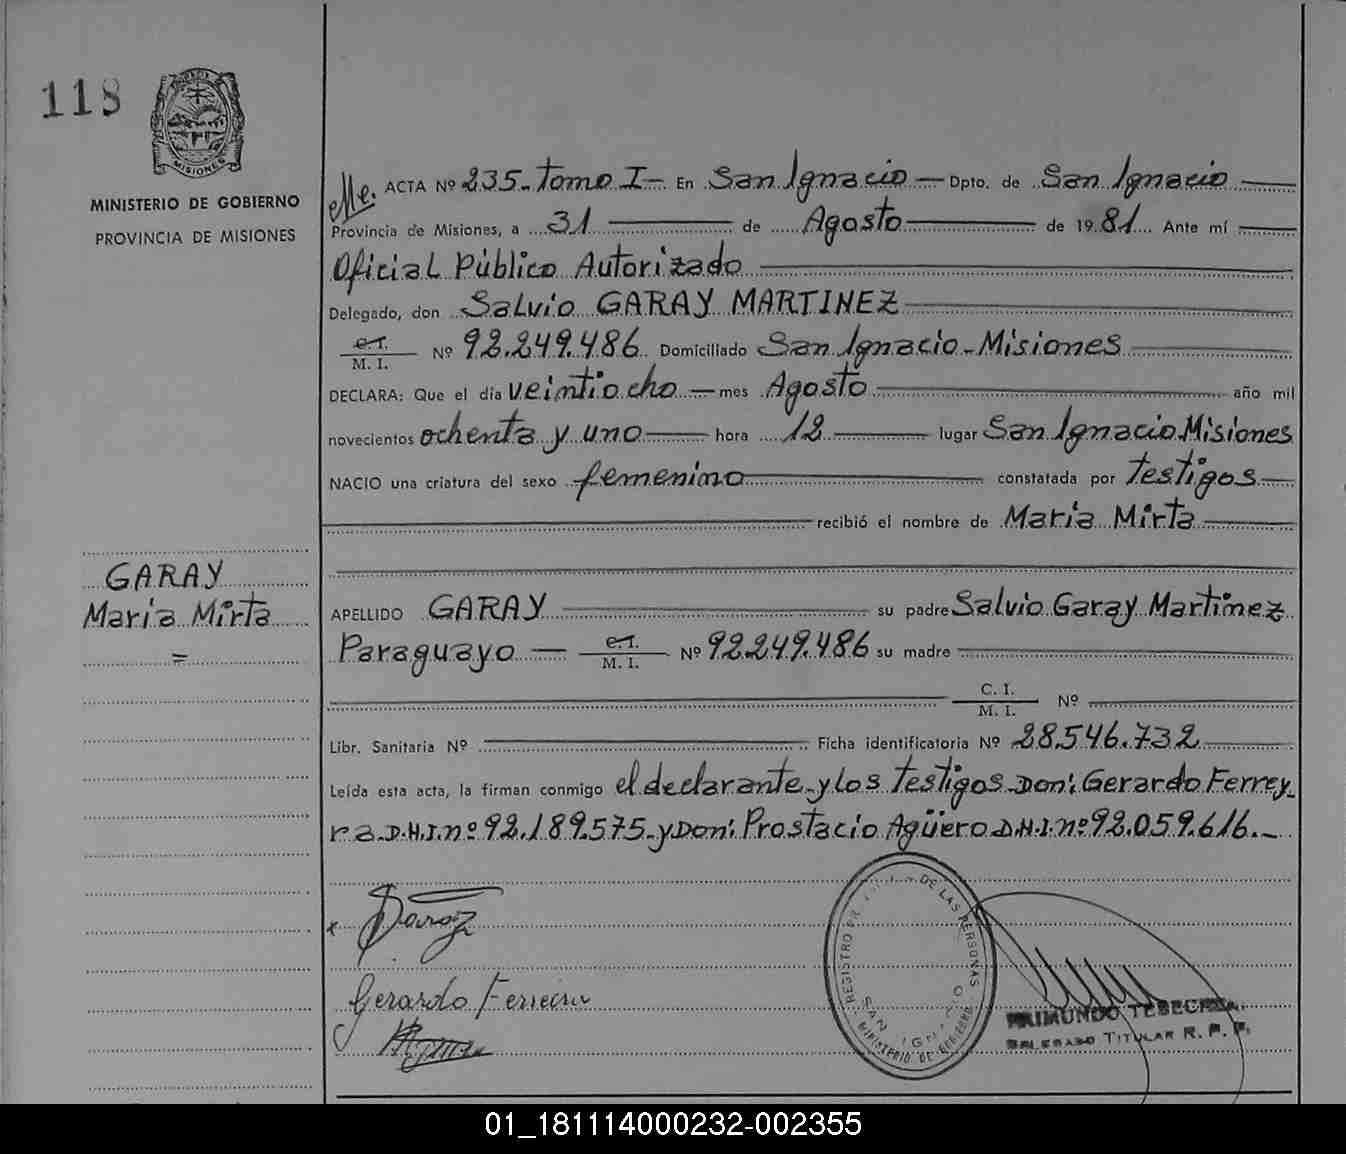 118
MISIONES
MINISTERIO DE GOBIERNO
PROVINCIA DE MISIONES
GARAY
Maria Mirta
=
Me. ACTA Nº 235 - Tomo I - En San Ignacio - Dpto. de San Ignacio
Provincia de Misiones, a 31 de Agosto de 1981 Ante mí
Oficial Público Autorizado
Delegado, don Salvio GARAY MARTINEZ
C.I. M. I. Nº 92.249.486 Domiciliado San Ignacio - Misiones
DECLARA: Que el día veintiocho - mes Agosto año mil
novecientos ochenta y uno hora 12 lugar San Ignacio Misiones
NACIO una criatura del sexo femenino constatada por testigos
recibió el nombre de Maria Mirta
APELLIDO GARAY su padre Salvio Garay Martinez
Paraguayo - C.I. M. I. Nº 92.249.486 su madre
C. I. M. I. Nº
Libr. Sanitaria Nº Ficha identificatoria Nº 28.546.732
Leída esta acta, la firman conmigo el declarante y los testigos Don: Gerardo Ferrey-
ra D.N.I. nº 92.189.575 - y Don: Prostacio Agüero D.N.I. nº 92.059.616. -
Gerardo Ferreira
REGISTRO DE LAS PERSONAS
SAN IGNACIO
MINISTERIO DE GOBIERNO
RAIMUNDO
DELEGADO TITULAR R. P. P.
01_181114000232-002355